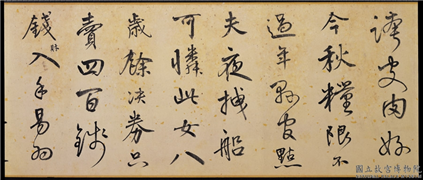 誇皮肉好
今秋糧限不
過年縣官點
夫夜捉船
可憐此女八
歲餘決券只
賣四百錢
錢入手易為
國立故宮博物院